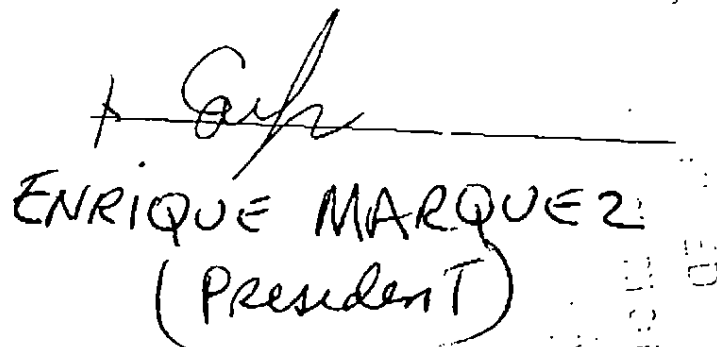 ENRIQUE MARQUEZ
(President)